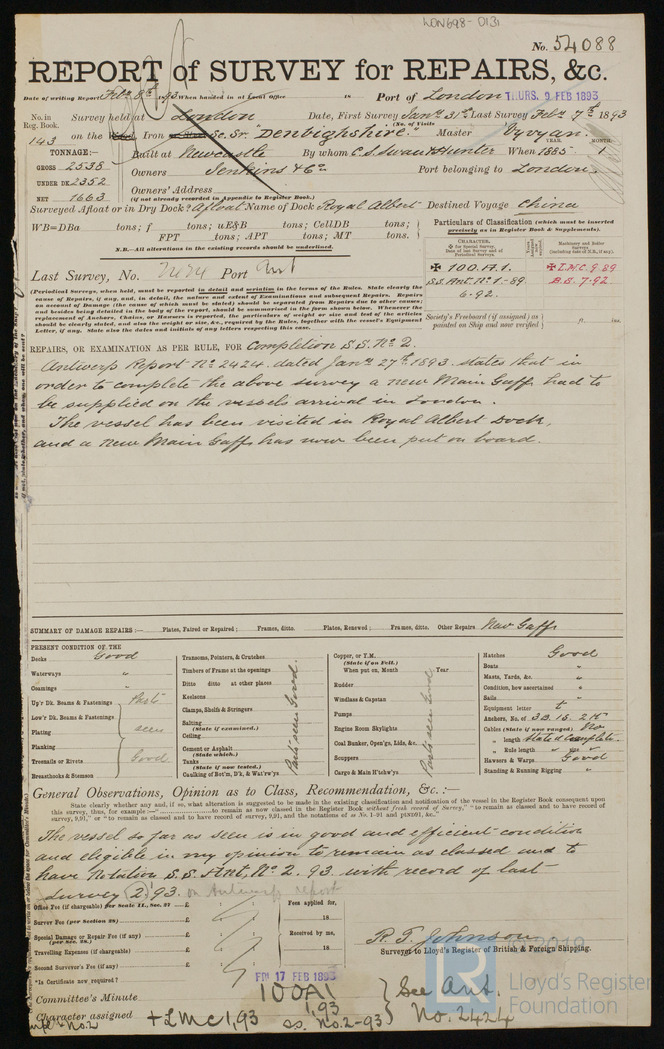 LON698-0131
No. 54088
REPORT of SURVEY for REPAIRS, &c.
Date of writing Report Feby 8th 1893 When handed in at Local Office 18 Port of London THURS. 9 FEB 1893
No. in Survey held at London Date, First Survey Jany 31st Last Survey Feby 7th 1893
Reg. Book. (No. of Visits
143 on the Iron Sc. Sr. "Denbighshire." Master Vyvyan.
TONNAGE:— Built at Newcastle By whom C.S. Swan & Hunter When 1885 1
YEAR. MONTH.
GROSS 2538 Owners Jenkins & Co Port belonging to London
UNDER DK 2352 Owners' Address
NET 1663 (if not already recorded in Appendix to Register Book.)
Surveyed Afloat or in Dry Dock? Afloat Name of Dock Royal Albert Destined Voyage China
WB=DBa tons; f tons; uE&B tons; CellDB tons;
FPT tons; APT tons; MT tons.
N.B.—All alterations in the existing records should be underlined.
Particulars of Classification (which must be inserted
precisely as in Register Book & Supplements).
CHARACTER.
✠ 100.A.1.
S.S. Ant. No. 1-89
6-92.
✠ L.M.C. 9.89
B.S. 7-92
Society's Freeboard (if assigned) as
painted on Ship and now verified ft. ins.
Last Survey, No. 2424 Port Ant
(Periodical Surveys, when held, must be reported in detail and seriatim in the terms of the Rules. State clearly the
cause of Repairs, if any, and, in detail, the nature and extent of Examinations and subsequent Repairs. Repairs
on account of Damage (the cause of which must be stated) should be separated from Repairs due to other causes;
and besides being detailed in the body of the report, should be summarised in the form shown below. Whenever the
replacement of Anchors, Chains, or Hawsers is reported, the particulars of weight or size and test of the articles
should be clearly stated, and also the weight or size, &c., required by the Rules, together with the vessel's Equipment
Letter, if any. State also the dates and initials of any letters respecting this case.
REPAIRS, OR EXAMINATION AS PER RULE, FOR Completion S.S. No 2.
Antwerp Report No 2424. dated Jany 27th 1893. states that in
order to complete the above survey a new Main Gaff had to
be supplied on the vessels arrival in London.
The vessel has been visited in Royal Albert Dock,
and a new Main Gaff has now been put on board.
SUMMARY OF DAMAGE REPAIRS :— Plates, Faired or Repaired; Frames, ditto. Plates, Renewed; Frames, ditto. Other Repairs New Gaff
PRESENT CONDITION OF THE
Decks Good
Waterways "
Coamings "
Up'r Dk. Beams & Fastenings
Low'r Dk. Beams & Fastenings
Plating
Planking
Treenails or Rivets
Breasthooks & Stemson
Parts seen Good
Transoms, Pointers, & Crutches
Timbers of Frame at the openings
Ditto ditto at other places
Keelsons
Clamps, Shelfs & Stringers
Salting
(State if examined.)
Ceiling
Cement or Asphalt
(State which.)
Tanks
(State if now tested.)
Caulking of Bot'm, D'k, & Wat'rw'ys
Parts seen Good.
Copper, or Y.M.
(State if on Felt.)
When put on, Month Year
Rudder
Windlass & Capstan
Pumps
Engine Room Skylights
Coal Bunker, Open'gs, Lids, &c.
Scuppers
Cargo & Main H'tchw'ys
Parts seen Good
Hatches Good
Boats "
Masts, Yards, &c. "
Condition, how ascertained
Sails "
Equipment letter t
Anchors, No. of 3B. 1S. 2K
Cables (State if now ranged) No
" length Stated Complete.
" Rule length
Hawsers & Warps Good
Standing & Running Rigging "
General Observations, Opinion as to Class, Recommendation, &c. :—
State clearly whether any and, if so, what alteration is suggested to be made in the existing classification and notification of the vessel in the Register Book consequent upon
The vessel so far as seen is in good and efficient condition
and eligible in my opinion to remain as classed and to
have Notation S.S. Ant, No. 2. 93. with record of last
survey 2,93. on Antwerp report
Office Fee (if chargeable) per Scale II., Sec. 27 £
Survey Fee (per Section 28) £
Special Damage or Repair Fee (if any) £
(per Sec. 28.)
Travelling Expenses (if chargeable) £
Second Surveyor's Fee (if any) £
Fees applied for,
18
Received by me,
18
R. T. Johnson
Surveyor to Lloyd's Register of British & Foreign Shipping.
*Is Certificate now required?
FRI 17 FEB 1893
Committee's Minute 100A1
Character assigned 1,93
+LMC 1,93 ss. No. 2-93
See Ant.
No. 2424
© 2019
LR
Lloyd's Register
Foundation